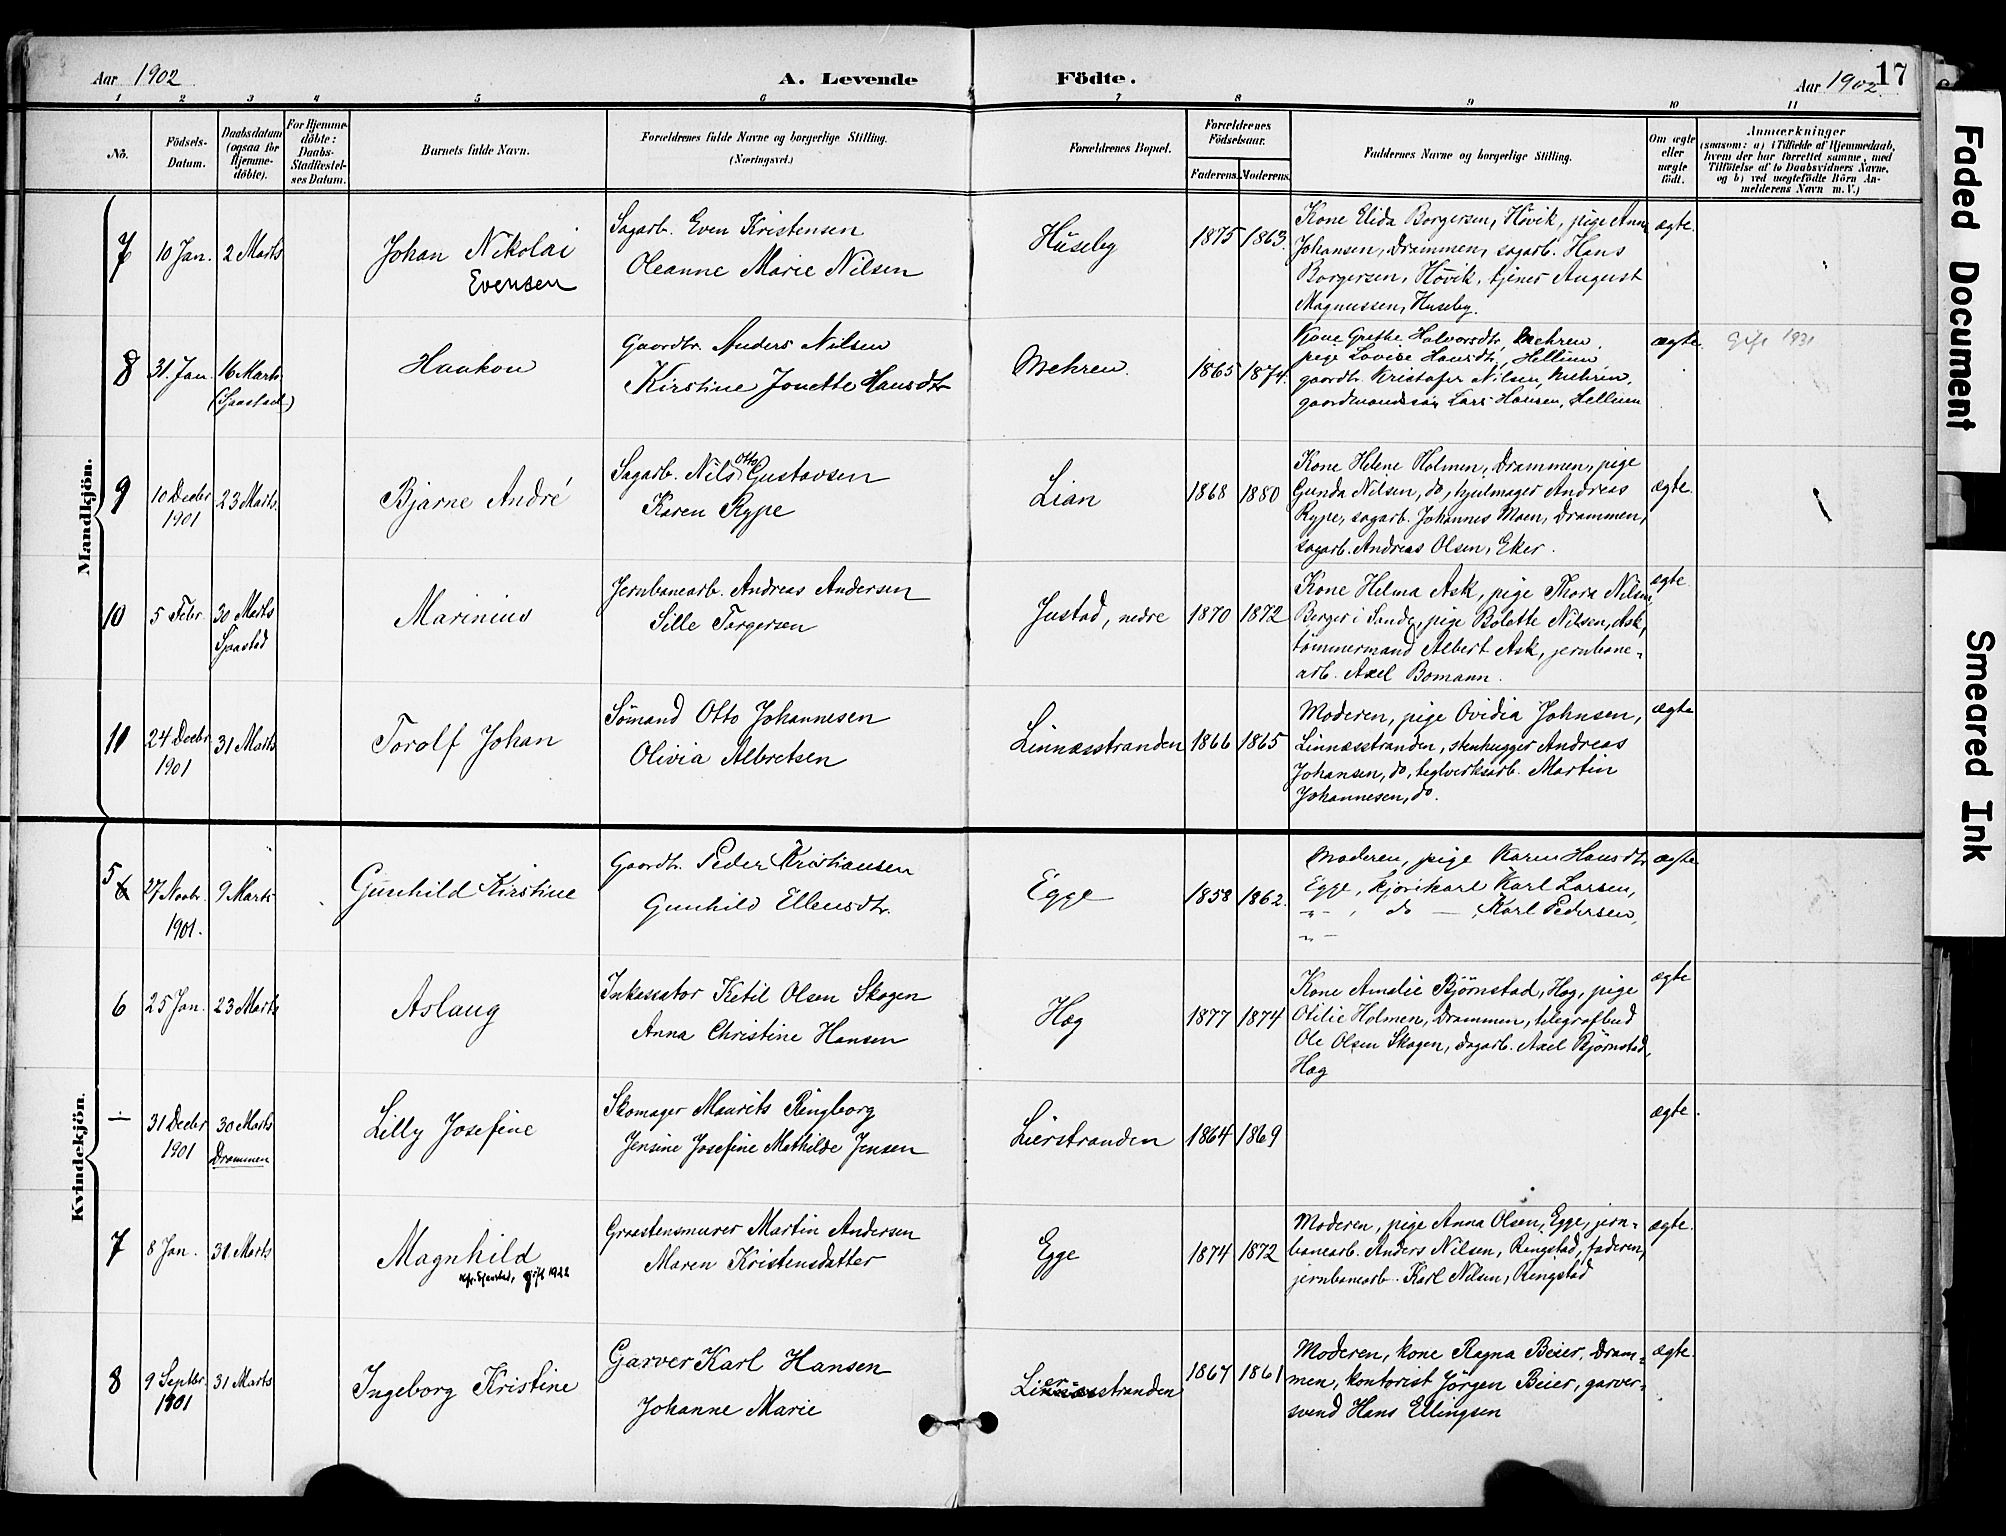 Aar 1902
A. Levende
Födte.
Aar 1902
17
1 2 3 4 5 6 7 8 9 10 11
No.
Födsels-
Datum.
Daabsdatum
(ogsaa for
Hjemme-
döbte).
For Hjemme-
döbte:
Daabs-
Stadfæstel-
ses Datum.
Barnets fulde Navn.
Forældrenes fulde Navne og borgerlige Stilling.
(Næringsvei.)
Forældrenes Bopæl.
Forældrenes
Födselsaar.
Faderens.
Moderens.
Faddernes Navne og borgerlige Stilling.
Om ægte
eller
uægte
födt.
Anmærkninger
(saasom: a) i Tilfælde af Hjemmedaab,
hvem der har forrettet samme, med
Tilföielse af to Daabsvidners Navne,
og b) ved uægtefödte Börn An-
melderens Navn m. V.)
Mandkjön.
7
10 Jan.
2 Marts
Johan Nikolai
Evensen
Sagarb. Even Kristensen
Oleanne Marie Nilsen
Huseby
1875
1863.
Kone Elida Borgersen, Hövik, pige Anna
Johansen, Drammen, sagarb. Hans
Borgersen, Hövik, tjener August
Magnussen, Huseby.
ægte.
8
31. Jan.
16 Marts
(Sjaastad)
Haakon
Gaardbr. Anders Nilsen
Kirstine Jonette Hansdtr
Mehren.
1865
1874.
Kone Grethe Halvorsdtr, Mehren.
pige Lovise Hansdtr, Hellium
gaardbr. Kristofer Nilsen, Mehren,
gaardmandssön Lars Hansen, Hellium
ægte.
Gift 1931
9
10 Decbr
1901
23 Marts.
Bjarne André
Sagarb. Nils Otto Gustavsen
Karen Rype
Lian
1868
1880
Kone Helene Holmen, Drammen, pige
Gunda Nilsen, do, hjulmager Andreas
Rype, sagarb. Johannes Moen, Drammen,
sagarb. Andreas Olsen, Eker.
ægte.
10
5 Febr.
30 Marts
Sjaastad
Marinius
Jernbanearb. Andreas Andersen
Sille Torgersen
Justad, nedre
1870
1872
Kone Helma Ask, pige Thora Nilsen,
Berger i Sande, pige Bolette Nilsen, Ask,
tömmermand Albert Ask, jernbane-
arb. Axel Bomann.
ægte.
11
24 Decbr
1901
31 Marts
Torolf Johan
Sömand Otto Johannesen
Olivia Albretsen
Linnæsstranden
1866
1865
Moderen, pige Ovidia Johnsen,
Linnæsstranden, stenhugger Andreas
Johansen, do, teglverksarb. Martin
Johannesen, do.
ægte
Kvindekjön.
5
27 Novbr.
1901.
9 Marts
Gunhild Kirstine
Gaardbr. Peder Kristiansen
Gunhild Ellensdtr.
Egge
1858
1862.
Moderen, pige Karen Hansdtr
Egge, kjörekarl Karl Larsen,
"- , do — , Karl Pedersen,
"-
ægte
6
25 Jan.
23 Marts
Aslaug
Inkassator Ketil Olsen Skogen
Anna Christine Hansen
Hæg
1877
1874
Kone Amalie Björnstad, Hæg, pige
Otilie Holmen, Drammen, telegrafbud
Ole Olsen Skogen, dagarb. Axel Björnstad,
Hæg
ægte
÷
31 Decbr
1901
30 Marts
Drammen
Lilly Josefine
Skomager Mauritz Ringborg
Jensine Josefine Mathilde Jensen
Lierstranden
1864
1869
ægte.
7
8 Jan.
31 Marts
Magnhild
gift 1922
Graastensmurer Martin Andersen
Maren Kristensdatter
Egge
1874
1872
Moderen, pige Anna Olsen, Egge, jern-
banearb. Anders Nilsen, Ringstad, faderen,
jernbanearb. Karl Nilsen, Ringstad
ægte.
8
9 Septbr.
1901
31 Marts
Ingeborg Kristine
Garver Karl Hansen
Johanne Marie
Lierstranden
1867
1861
Moderen, kone Ragna Beier, Dram-
men, kontorist Jörgen Beier, garver-
svend Hans Ellingsen
ægte.
Faded Document
Smeared Ink